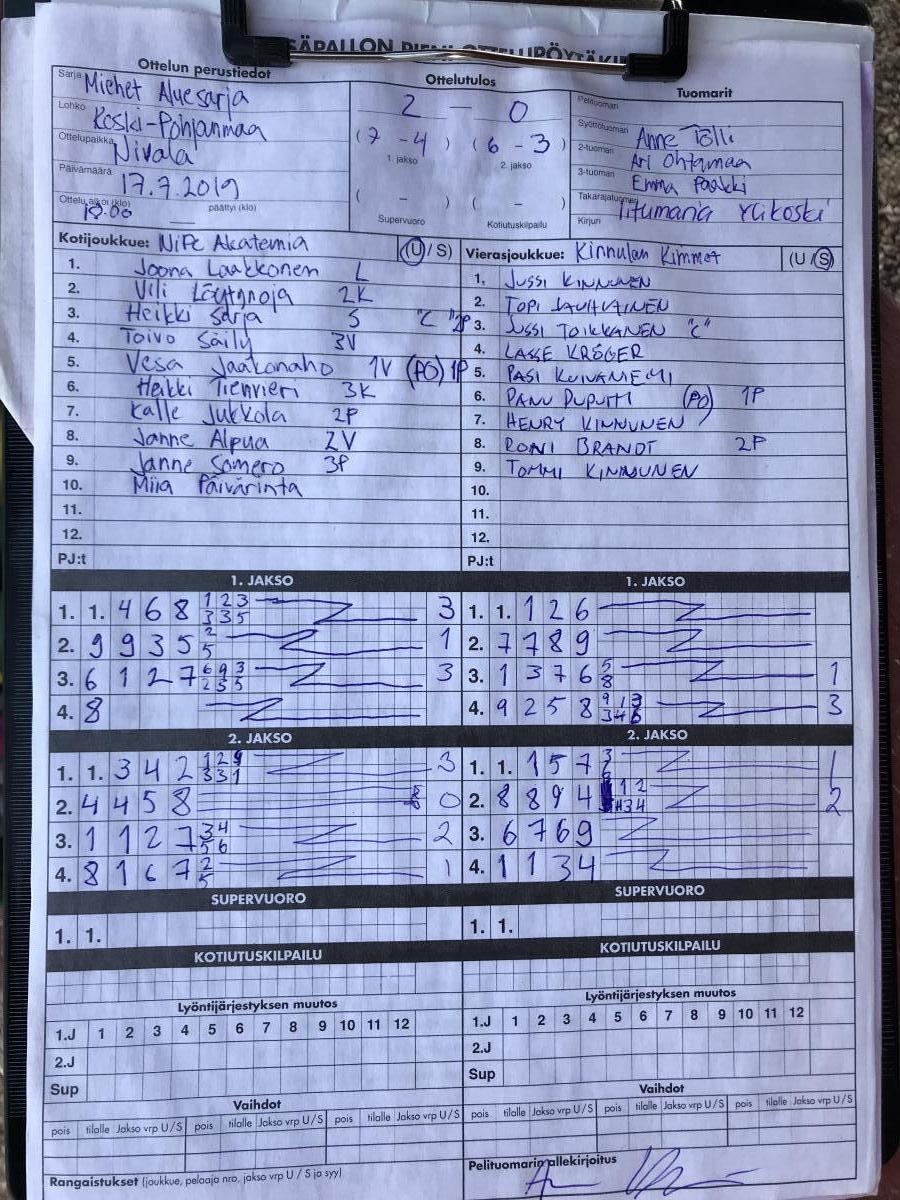 Ottelun perustiedot
Sarja Miehet Aluesarja
Lohko Keski-Pohjanmaa
Ottelupaikka Nivala
Päivämäärä 17.7.2019
Ottelu alkoi (klo) päättyi (klo)
Ottelutulos
2 – 0
(7 - 4) (6 - 3)
1. jakso 2. jakso
( - ) ( - )
Supervuoro Kotiutuskilpailu
Tuomarit
Pelituoman
Syöttötuoman Anne Tölli
2-tuoman Ari Ohtamaa
3-tuoman Emma
Takarajatuoman
Kirjuri
Kotijoukkue: NiPe Akatemia (U/S)
1. Joona Laakkonen L
2. Vili Löytynoja 2K
3. Heikki Sarja S "C" 2P
4. Toivo Säily 3V
5. Vesa Jaakonaho 1V (PO) 1P
6. Heikki Tienvieri 3K
7. Kalle Jukkola 2P
8. Janne Alpua 2V
9. Janne Somero 3P
10. Miia Päivärinta
11.
12.
PJ:t
Vierasjoukkue: Kinnulan Kimmet (U/S)
1. JUSSI KINNUNEN
2. TOPI
3. JUSSI TOIKKANEN "C"
4. LASSE KRÖGER
5. PASI KUIVANIEMI
6. PANU PUPUTTI (PO) 1P
7. HENRY KINNUNEN
8. RONI BRANDT 2P
9. TOMMI KINNUNEN
10.
11.
12.
PJ:t
1. JAKSO
1. 1. 4 6 8 1 2 3 3
3 3 5
2. 9 9 3 5 2 1
5
3. 6 1 2 7 6 9 3 3
2 3 5
4. 8
1. JAKSO
1. 1. 1 2 6
2. 7 7 8 9
3. 1 3 7 6 5 1
8
4. 9 2 5 8 9 1 3 3
3 4 6
2. JAKSO
1. 1. 3 4 2 1 2 9 3
3 3 1
2. 4 4 5 8 0
3. 1 1 2 7 3 4 2
5 6
4. 8 1 6 7 2 1
5
2. JAKSO
1. 1. 1 5 7 3 1
6
2. 8 8 9 4 1 2 2
3 4
3. 6 7 6 9
4. 1 1 3 4
SUPERVUORO
1. 1.
SUPERVUORO
1. 1.
KOTIUTUSKILPAILU
KOTIUTUSKILPAILU
Lyöntijärjestyksen muutos
1.J 1 2 3 4 5 6 7 8 9 10 11 12
2.J
Sup
Lyöntijärjestyksen muutos
1.J 1 2 3 4 5 6 7 8 9 10 11 12
2.J
Sup
Vaihdot
pois tilalle Jakso vrp U/S pois tilalle Jakso vrp U/S pois tilalle Jakso vrp U/S
Vaihdot
pois tilalle Jakso vrp U/S pois tilalle Jakso vrp U/S pois tilalle Jakso vrp U/S
Rangaistukset (joukkue, pelaaja nro, jakso vrp U / S ja syy)
Pelituomarin allekirjoitus